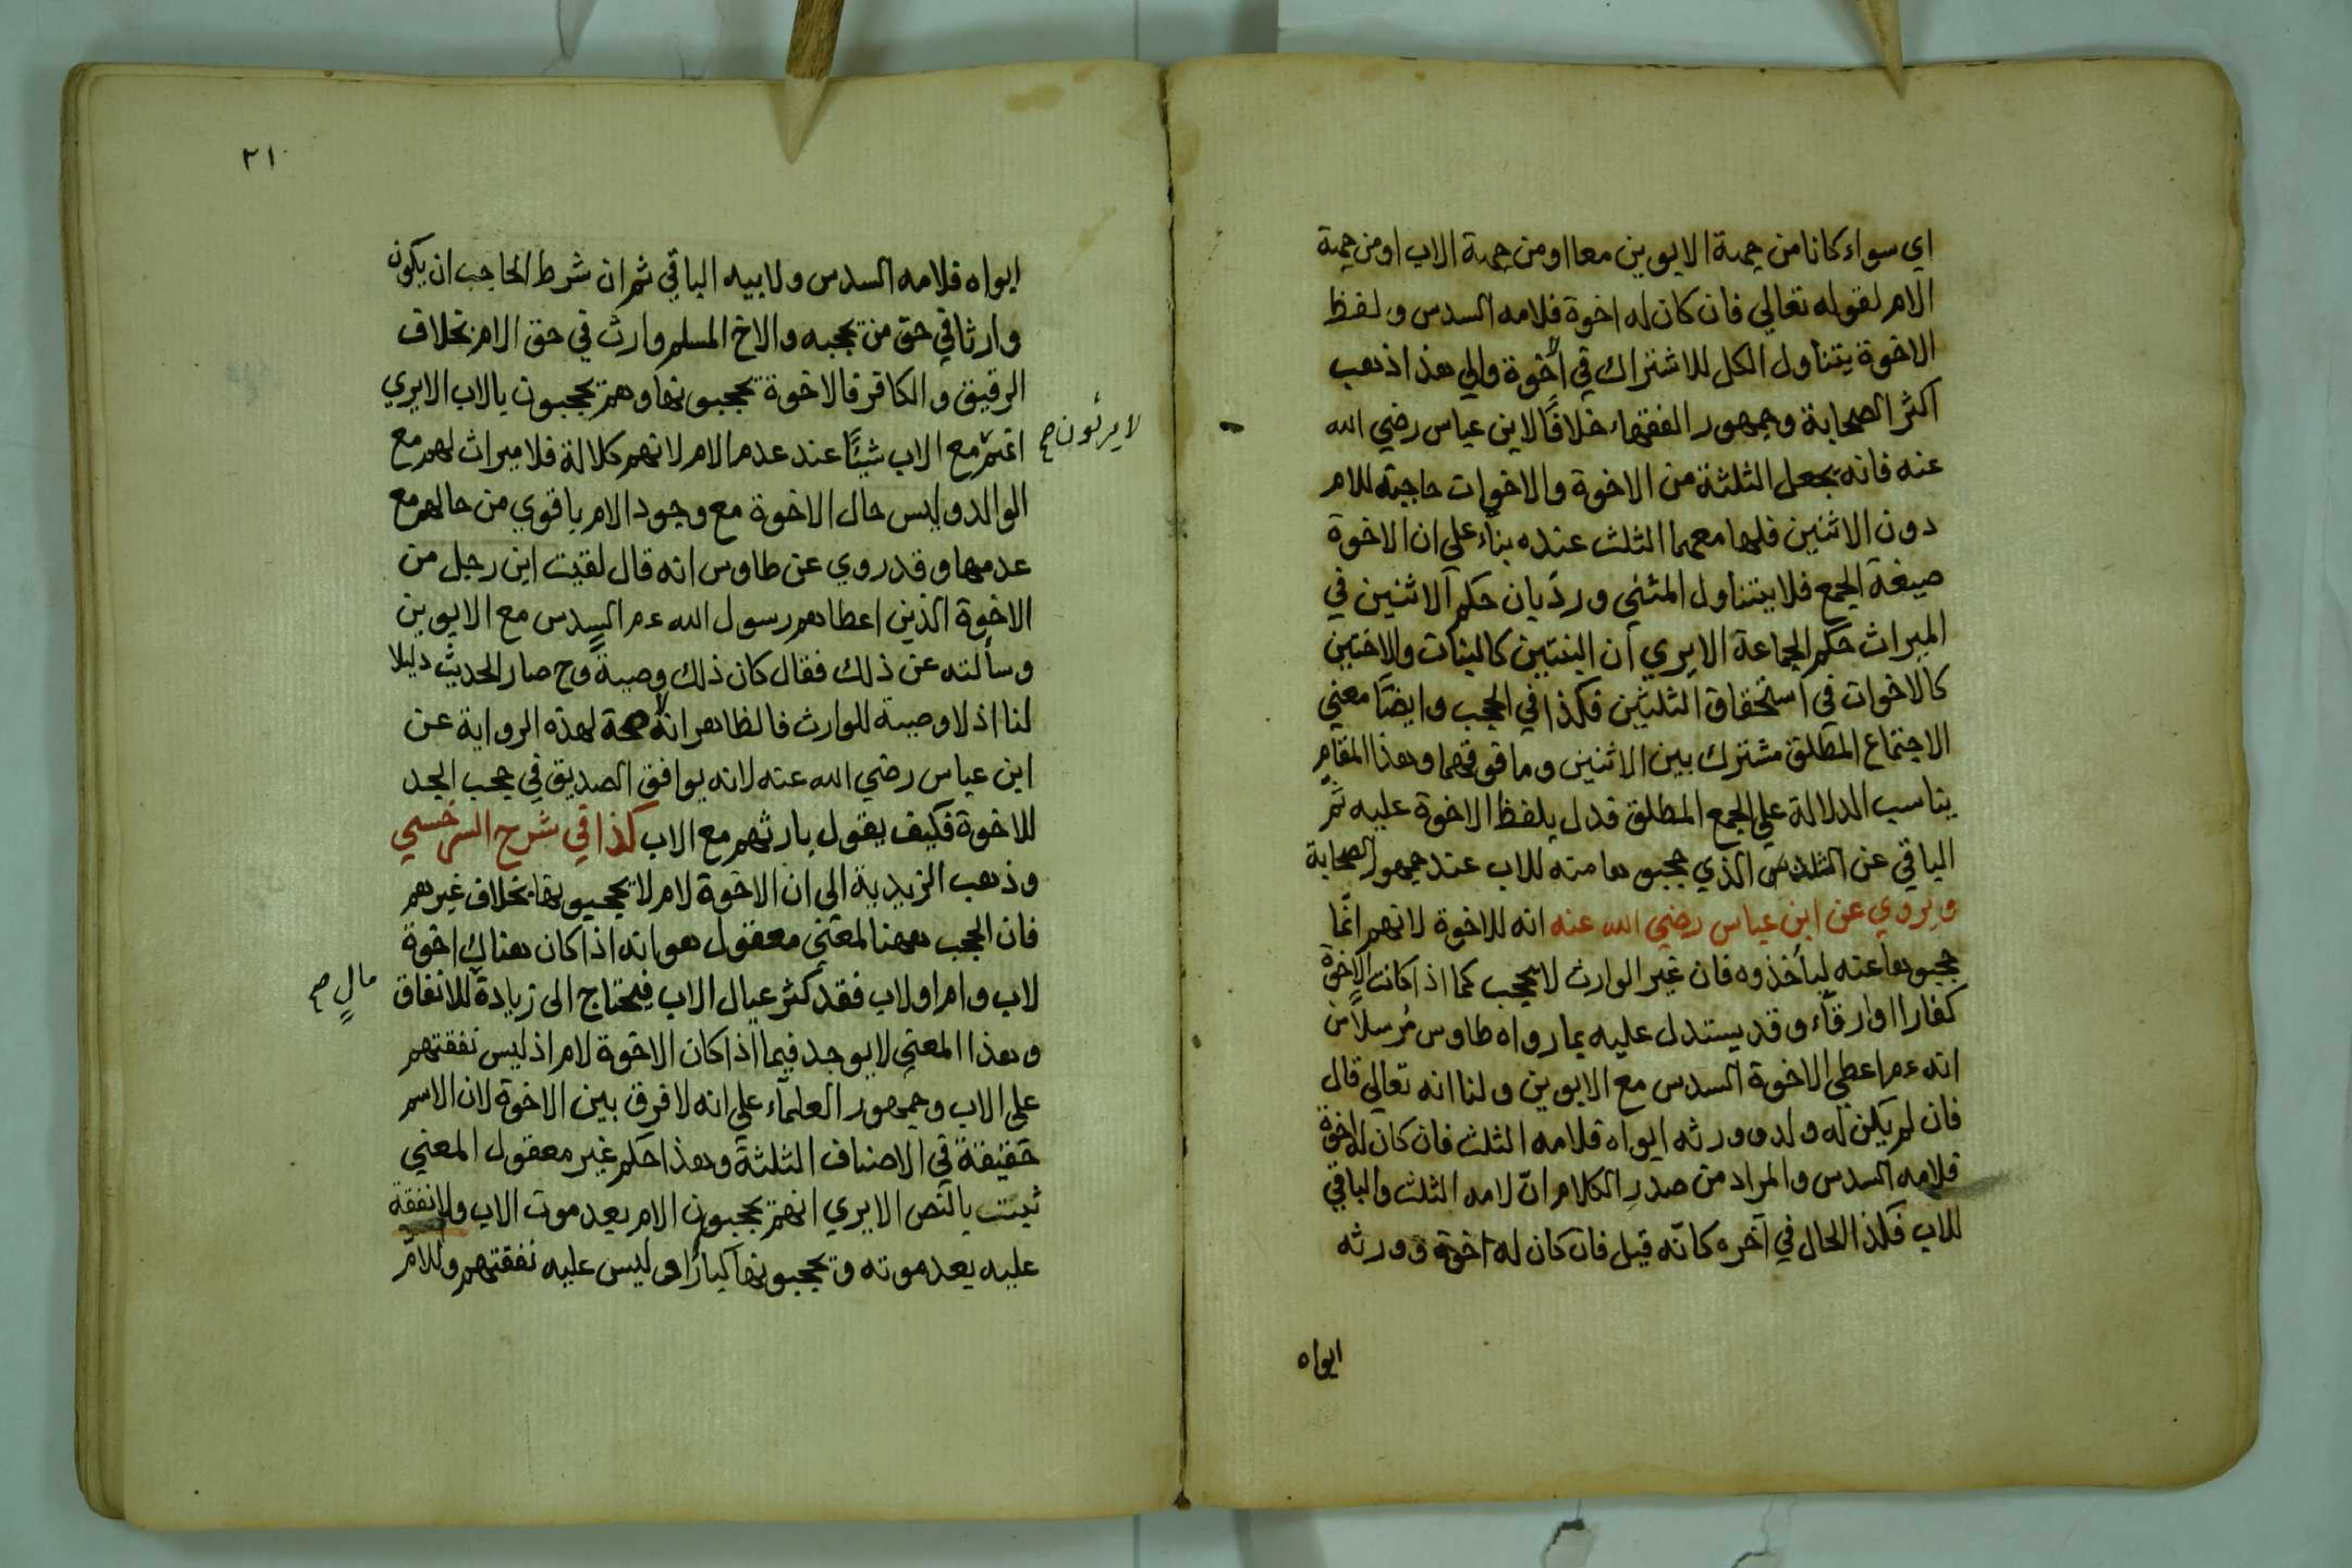 اي سواء كانا من جهة الابوين معا او من جهة الاب او من جهة
الام لقوله تعالي فان كان له اخوة فلامه السدس ولفظ
الاخوة يتناول الكل للاشتراك في الأخوة والي هذا ذهب
اكثر الصحابة وجمهور الفقهاء خلافًا لابن عباس رضي الله
عنه فانه يجعل الثلثة من الاخوة والاخوات حاجبة للام
دون الاثنين فلها معهما الثلث عنده بناء علي ان الاخوة
صيغة الجمع فلا يتناول المثني ورد بان حكم الاثنين في
الميراث حكم الجماعة الا يري ان البنتين كالبنات والاختين
كالاخوات في استحقاق الثلثين فكذا في الحجب وايضًا معني
الاجتماع المطلق مشترك بين الاثنين وما فوقهما وهذا المقام
يناسب الدلالة علي الجمع المطلق فدل بلفظ الاخوة عليه ثم
الباقي عن السدس الذي حجبوها منه للاب عند جمهور الصحابة
ويروي عن ابن عباس رضي الله عنه انه للاخوة لانهم انما
حجبوها عنه ليأخذوه فان غير الوارث لا يحجب كما اذا كانت الاخوة
كفارا او ارقّاء وقد يستدل عليه بما رواه طاوس مُرسلاً من
انه ءم اعطي الاخوة السدس مع الابوين ولنا انه تعالي قال
فان لم يكن له ولد وورثه ابواه فلامه الثلث فان كان له اخوة
فلامه السدس والمراد من صدر الكلام انّ لامه الثلث والباقي
للاب فكذا الحال في آخره كانّه قيل فان كان له اخوة وورثه
ابواه
٢١
ابواه فلامه السدس ولابيه الباقي ثم ان شرط الحاجب ان يكون
وارثا في حق من يحجبه والاخ المسلم وارث في حق الام بخلاف
الرقيق والكافر فالاخوة يحجبونها وهم يحجبون بالاب الا يري
انهم مع الاب شيئًا عند عدم الام لانهم كلالة فلا ميراث لهم مع
لا يرثون صح
الوالد وليس حال الاخوة مع وجود الام باقوي من حالهم مع
عدمها وقد روي عن طاوس انه قال لقيت ابن رجل من
الاخوة الذين اعطاهم رسول الله ءم السدس مع الابوين
وسألته عن ذلك فقال كان ذلك وصيةً وح صار الحديث دليلا
لنا اذ لا وصية للوارث فالظاهر انه لا صحة لهذه الرواية عن
ابن عباس رضي الله عنه لانه يوافق الصديق في حجب الجد
للاخوة فكيف يقول بارثهم مع الاب كذا في شرح السرخسي
وذهب الزيدية الى ان الاخوة لام لا يحجبونها بخلاف غيرهم
فان الحجب ههنا لمعني معقول هو انه اذا كان هناك اخوة
لاب وام او لاب فقد كثر عيال الاب فيحتاج الى زيادة للانفاق
مالٍ صح
وهذا المعني لا يوجد فيما اذا كان الاخوة لام اذ ليس نفقتهم
على الاب وجمهور العلمآء علي انه لا فرق بين الاخوة لان الاسم
حقيقة في الاصناف الثلثة وهذا حكم غير معقول المعني
ثبت بالنص الا يري انهم يحجبون الام بعد موت الاب ولا نفقة
عليه بعد موته ويحجبونها كبارًا وليس عليه نفقتهم وللام